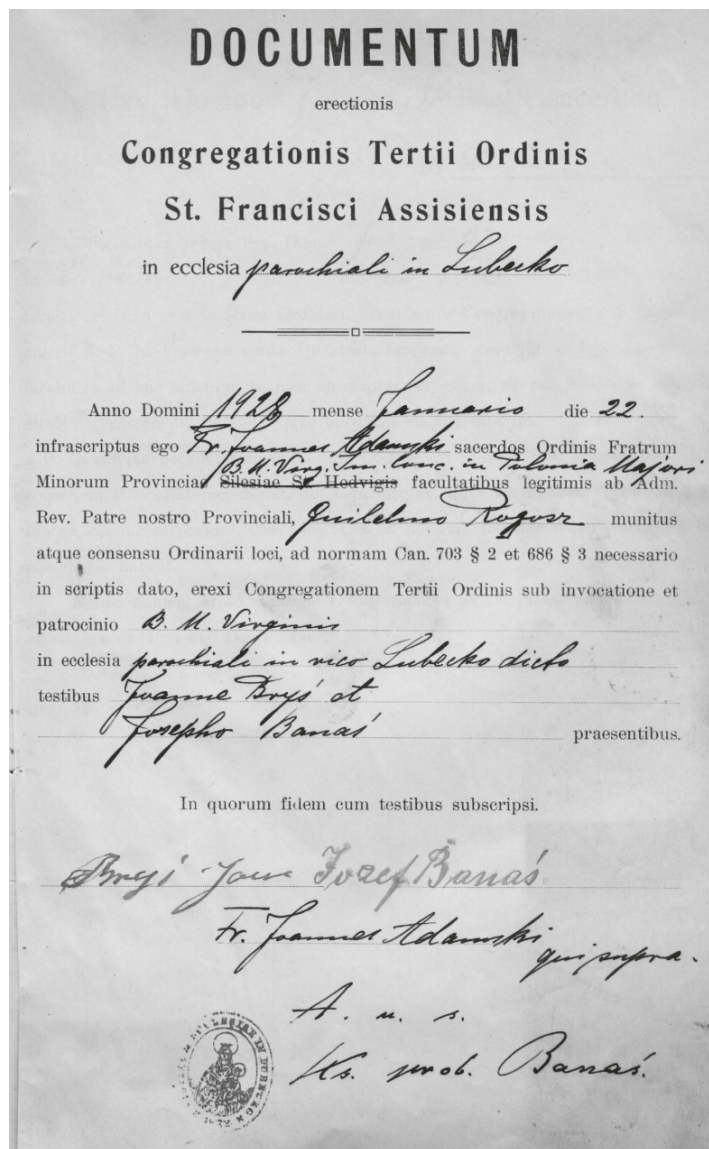 DOCUMENTUM
erectionis
Congregationis Tertii Ordinis
St. Francisci Assisiensis
in ecclesia parochiali in Lubecko
Anno Domini 1928 mense Januario die 22.
infrascriptus ego Fr. Joannes Adamski sacerdos Ordinis Fratrum
B. M. Virg. Im. Conc. in Polonia Majori
Minorum Provinciae Silesiae St. Hedvigis facultatibus legitimis ab Adm.
Rev. Patre nostro Provinciali, Guilelmo Rogosz munitus
atque consensu Ordinarii loci, ad normam Can. 703 § 2 et 686 § 3 necessario
in scriptis dato, erexi Congregationem Tertii Ordinis sub invocatione et
patrocinio B. M. Virginis
in ecclesia parochiali in vico Lubecko dicto
testibus Joanne Bryś et
Josepho Banaś praesentibus.
In quorum fidem cum testibus subscripsi.
Bryś Jozef Banaś
Fr. Joannes Adamski
qui supra.
A. u. s.
Ks. prob. Banaś.